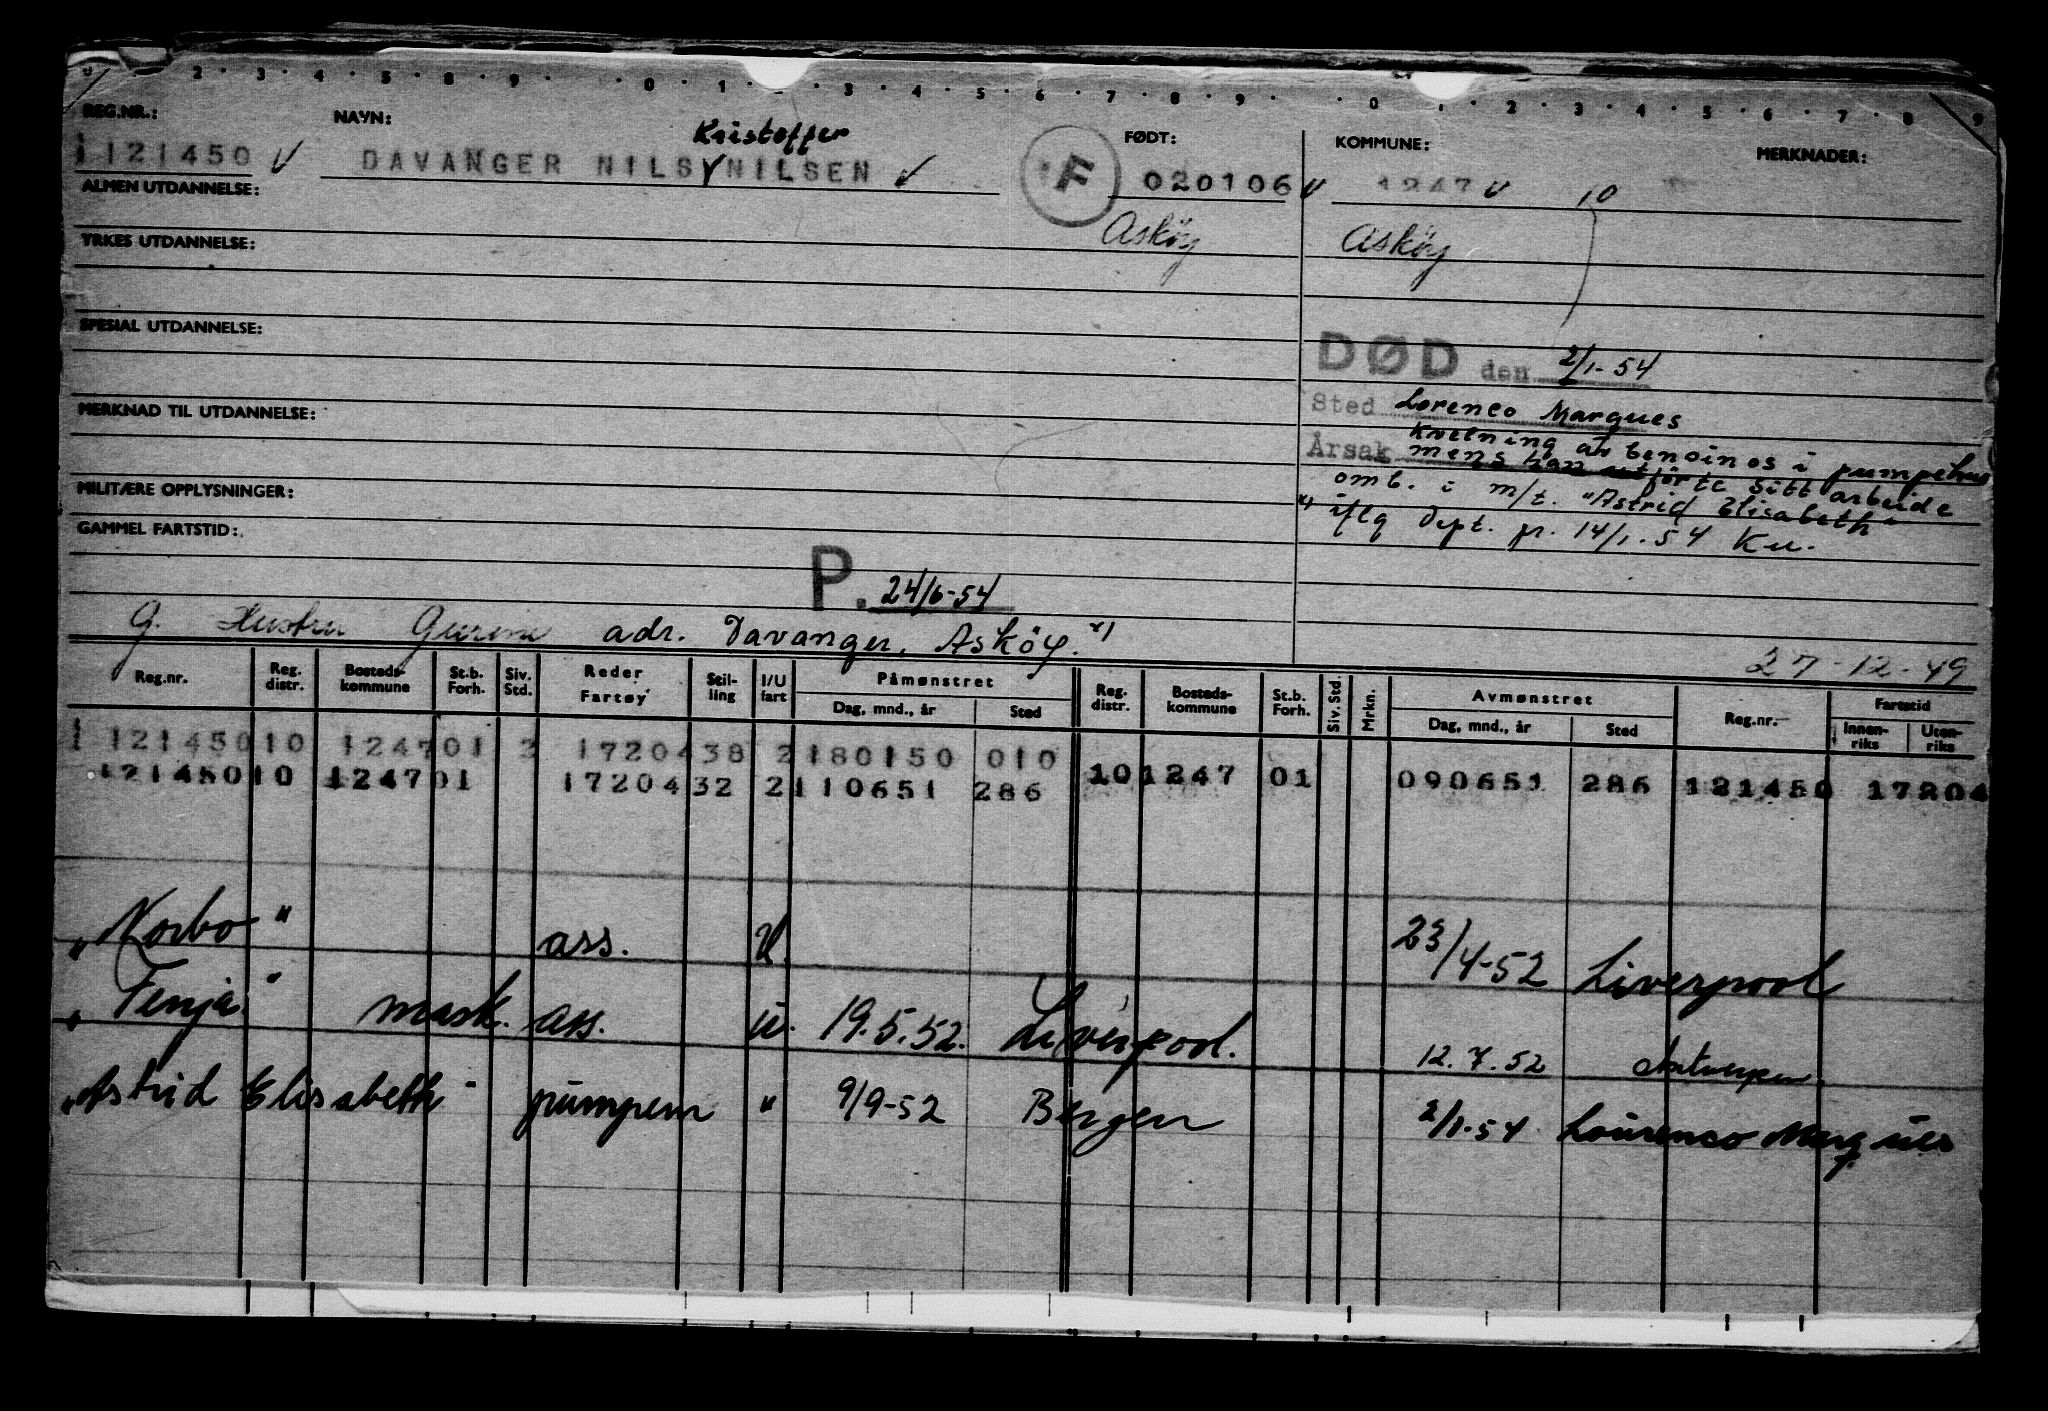 2 · 3 · 4 · 5 · 8 · 9 · · 0 · 1 · 3 · 4 · 5 · 6 · 7 · 8 · 9 · · 0 · 1 · 2 · 3 · 4 · 5 · 6 · 7 · 8 · 9
REG.NR.: NAVN: FØDT: KOMMUNE: MERKNADER:
Kristoffer
1121450 DAVANGER NILS NILSEN F 020106 1247 10
ALMEN UTDANNELSE:
Asköy Asköy
YRKES UTDANNELSE:
SPESIAL UTDANNELSE:
DØD den 2/1-54
Sted Lorenco Marques
MERKNAD TIL UTDANNELSE:
Årsak Kvelning av bensinos i pumpehus
mens han utförte sitt arbeide
MILITÆRE OPPLYSNINGER:
omb. i m/t. "Astrid Elisabeth"
iflg Dept. pr. 14/1-54 Ku.
GAMMEL FARTSTID:
P. 24/6-54
G. Hustru adr. Davanger, Asköy. x)
27-12-49
Reg.nr. Reg. distr. Bosteds-kommune St.b. Forh. Siv. Std. Reder Fartøy Stil-ling I/U fart Påmønstret Dag, mnd., år Sted Reg. distr. Bosteds-kommune St.b. Forh. Siv. Std. Mrkn. Avmønstret Dag, mnd., år Sted Reg.nr. Fartstid Innen-riks Uten-riks
1 121450 10 1247 01 3 17204 38 2 180150 010
121450 10 1247 01 17204 32 2 110651 286 10 1247 01 090651 286 121450 17204
"Norbo" ass. U. 23/4-52 Liverpool
"Fenja" mask. ass. u. 19.5.52. Liverpool. 12.7.52 Antwerpen
"Astrid Elisabeth" pumpem " 9/9-52 Bergen 2/1-54 Lourenco Marques